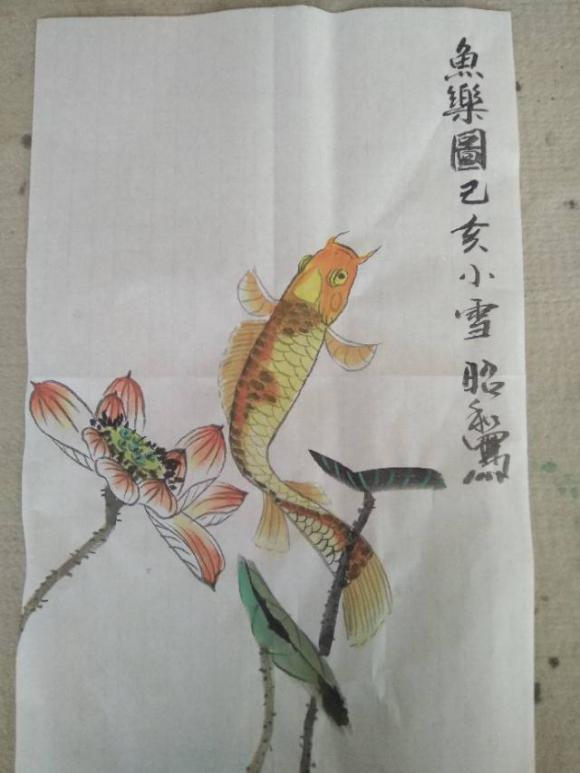 魚樂圖己亥小雪 昭和寫